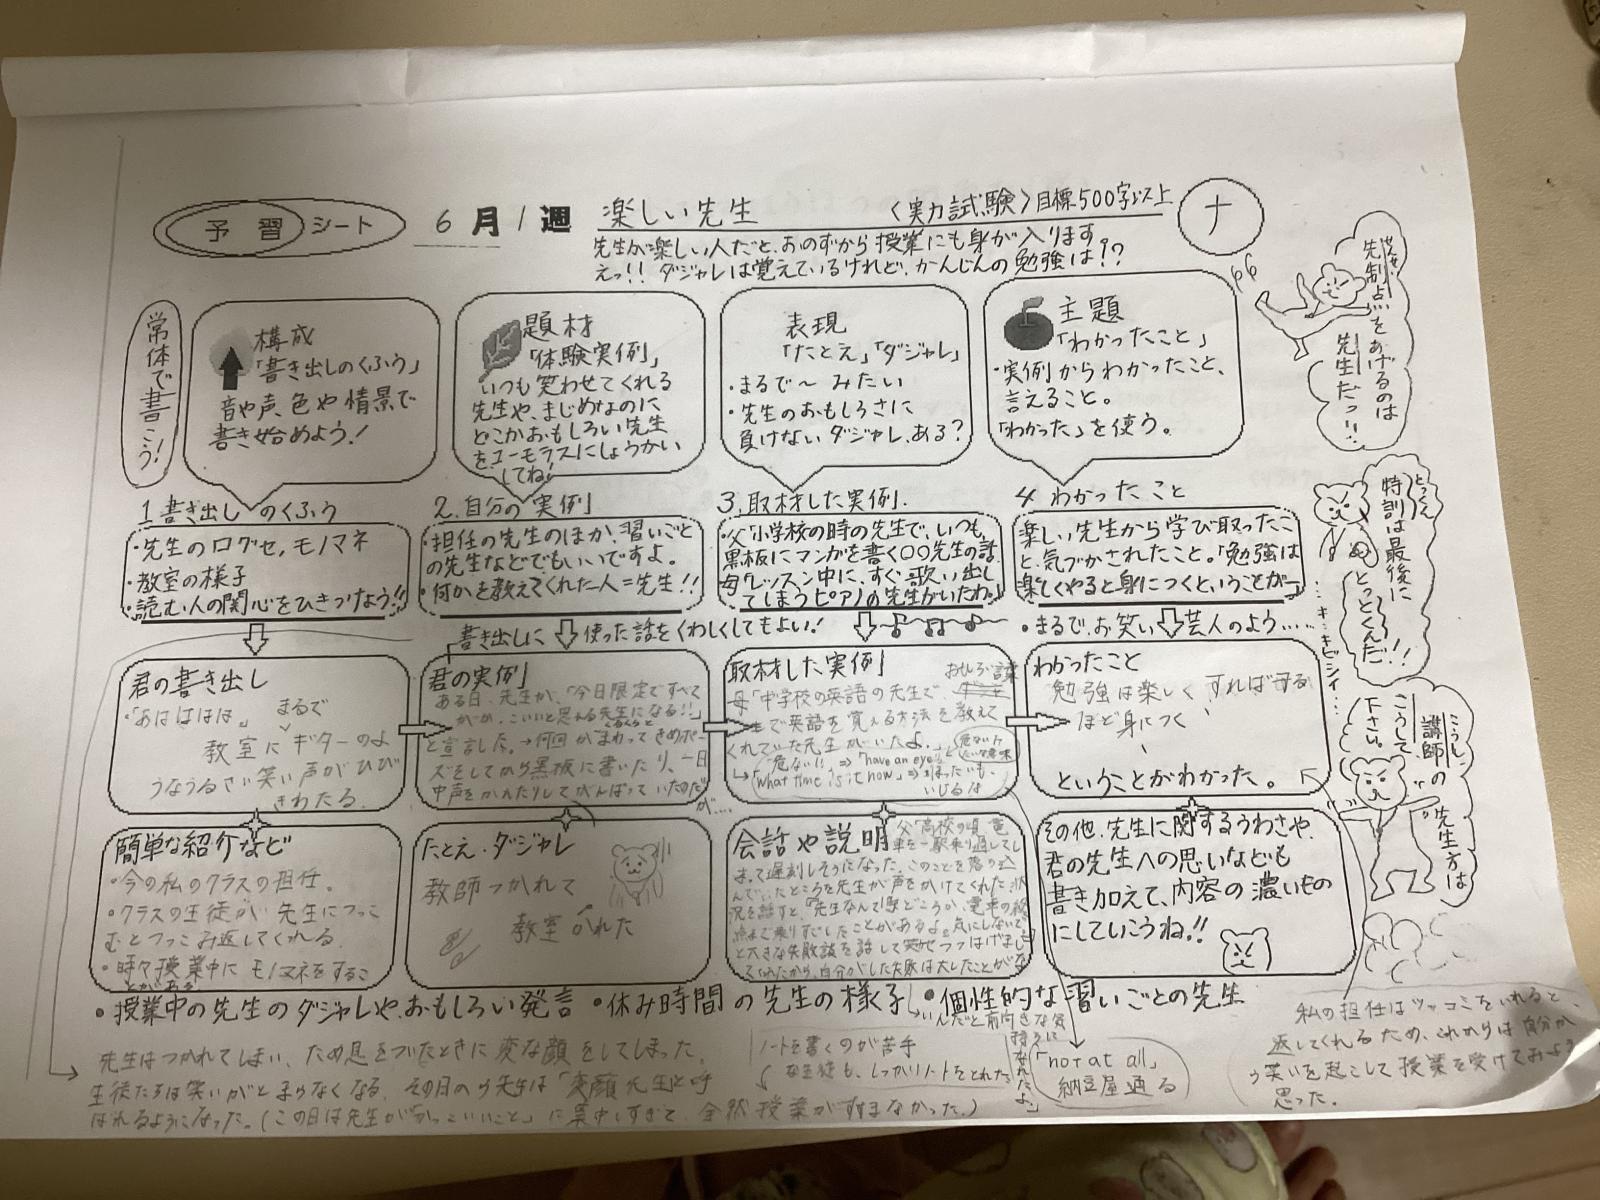 予習シート
6月1週 楽しい先生
〈実力試験〉目標500字以上
ナ
先生が楽しい人だと、おのずから授業にも身が入ります
えっ!! ダジャレは覚えているけれど、かんじんの勉強は!?
常体で書こう!
構成
「書き出しのくふう」
音や声、色や情景で
書き始めよう!
題材
「体験実例」
いつも笑わせてくれる
先生や、まじめなのに
どこかおもしろい先生
をユーモラスにしょうかい
してね!
表現
「たとえ」「ダジャレ」
・まるで〜みたい
・先生のおもしろさに
負けないダジャレ、ある?
主題
「わかったこと」
・実例からわかったこと、
言えること。
「わかった」を使う。
せんせい
先制点をあげるのは
先生だっ!!
1.書き出しのくふう
・先生の口グセ,モノマネ
・教室の様子
・読む人の関心をひきつけよう!!
2.自分の実例
・担任の先生のほか、習いごと
の先生などでもいいですよ。
・何かを教えてくれた人=先生!!
3.取材した実例.
・父「小学校の時の先生で、いつも、
黒板にマンガを書く〇〇先生の話
母「レッスン中に、すぐ歌い出し
てしまうピアノの先生がいたわ。
4 わかったこと
楽しい先生から学び取ったこ
と、気づかされたこと。「勉強は
楽しくやると身につくということが〜
とっくん
特訓は最後に
とっとくんだ!!
…キ…キビシイ…
書き出しに使った話をくわしくしてもよい!
・まるで、お笑い芸人のよう……
君の書き出し
・「あはははは。」
まるで
教室にギターのよ
うなうるさい笑い声がひび
きわたる.
君の実例
ある日、先生が、「今日限定ですべて
かっこいいと思える先生になる!!」
と宣言した。→何回かまわってきめポー
ズをしてから黒板に書いたり、一日
中声をかえたりしてがんばっていたのだ
が…
取材した実例
おもしろい
母「中学校の英語の先生で、
で英語を覚える方法を教えて
くれていた先生がいたよ。
危ない!! ⇒「have an eye」
「What time is it now」⇒ ほったいも、
いじるな
わかったこと
勉強は楽しくすればするほど身につく
ということがわかった。
こうし
講師の先生方は
こうして
下さい。
簡単な紹介など
・今の私のクラスの担任。
・クラスの生徒が先生につっこ
むとつっこみ返してくれる.
・時々授業中にモノマネをするこ
とがある
たとえ・ダジャレ
教師つかれて
教室かれた
会話や説明
父「高校の頃、電
車を一駅乗り過してし
まって遅刻しそうになった。このことを落ち込
んでいたところを先生が声をかけてくれた。状
況を話すと、「先生なんて1駅どころか、電車の終
点まで乗りすごしたことがあるよ。気にしないで」
と大きな失敗談を話して笑せつつはげまし
てくれたから、自分がした失敗は大したことがな
いんだと前向きな気
持ちに
なれたよ。」
その他、先生に関するうわさや、
君の先生への思いなども
書き加えて、内容の濃いもの
にしていこうね!!
・授業中の先生のダジャレや、おもしろい発言 ・休み時間の先生の様子 ・個性的な習いごとの先生
先生はつかれてしまい、ため息をついたときに変な顔をしてしまった。
生徒たちは笑いがとまらなくなる.その日のうち先生は「変顔先生」と呼
ばれるようになった。(この日は先生が「かっこいいこと」に集中しすぎて、全然授業がすすまなかった.)
ノートを書くのが苦手
な生徒も、しっかりノートをとれた
「not at all」
納豆屋通る
私の担任はツッコミをいれると、
返してくれるため、これからは自分か
ら笑いを起こして授業を受けてみようと
思った。